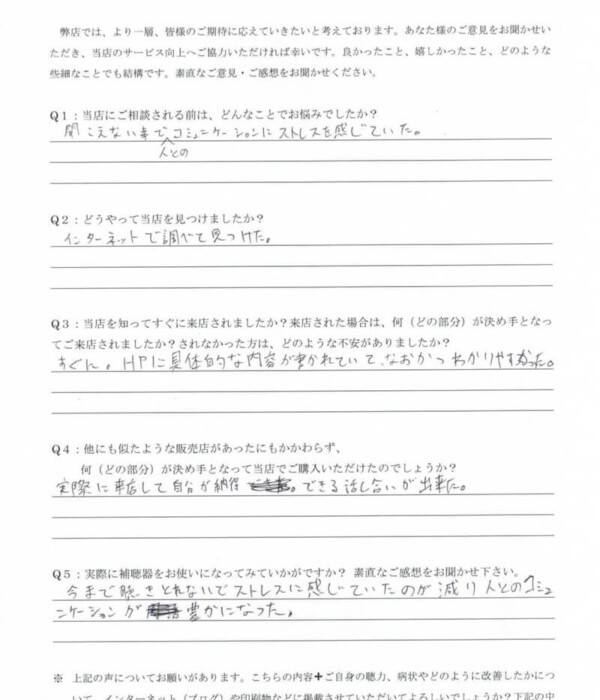 弊店では、より一層、皆様のご期待に応えていきたいと考えております。あなた様のご意見をお聞かせい
ただき、当店のサービス向上へご協力いただければ幸いです。良かったこと、嬉しかったこと、どのような
些細なことでも結構です。素直なご意見・ご感想をお聞かせください。
Q1：当店にご相談される前は、どんなことでお悩みでしたか？
聞こえない事でコミュニケーションにストレスを感じていた。
人との
Q2：どうやって当店を見つけましたか？
インターネットで調べて見つけた。
Q3：当店を知ってすぐに来店されましたか？来店された場合は、何（どの部分）が決め手となっ
てご来店されましたか？されなかった方は、どのような不安がありましたか？
すぐに。HPに具体的な内容が書かれていて、なおかつわかりやすかった。
Q4：他にも似たような販売店があったにもかかわらず、
何（どの部分）が決め手となって当店でご購入いただけたのでしょうか？
実際に来店して自分が納得できる話し合いが出来た。
Q5：実際に補聴器をお使いになってみていかがですか？ 素直なご感想をお聞かせ下さい。
今まで聴きとれないでストレスに感じていたのが減り人とのコミュ
ニケーションが豊かになった。
※ 上記の声についてお願いがあります。こちらの内容＋ご自身の聴力、病状やどのように改善したかにつ
いて、インターネット（ブログ）や印刷物などに掲載させていただいてよろしいでしょうか？下記の中